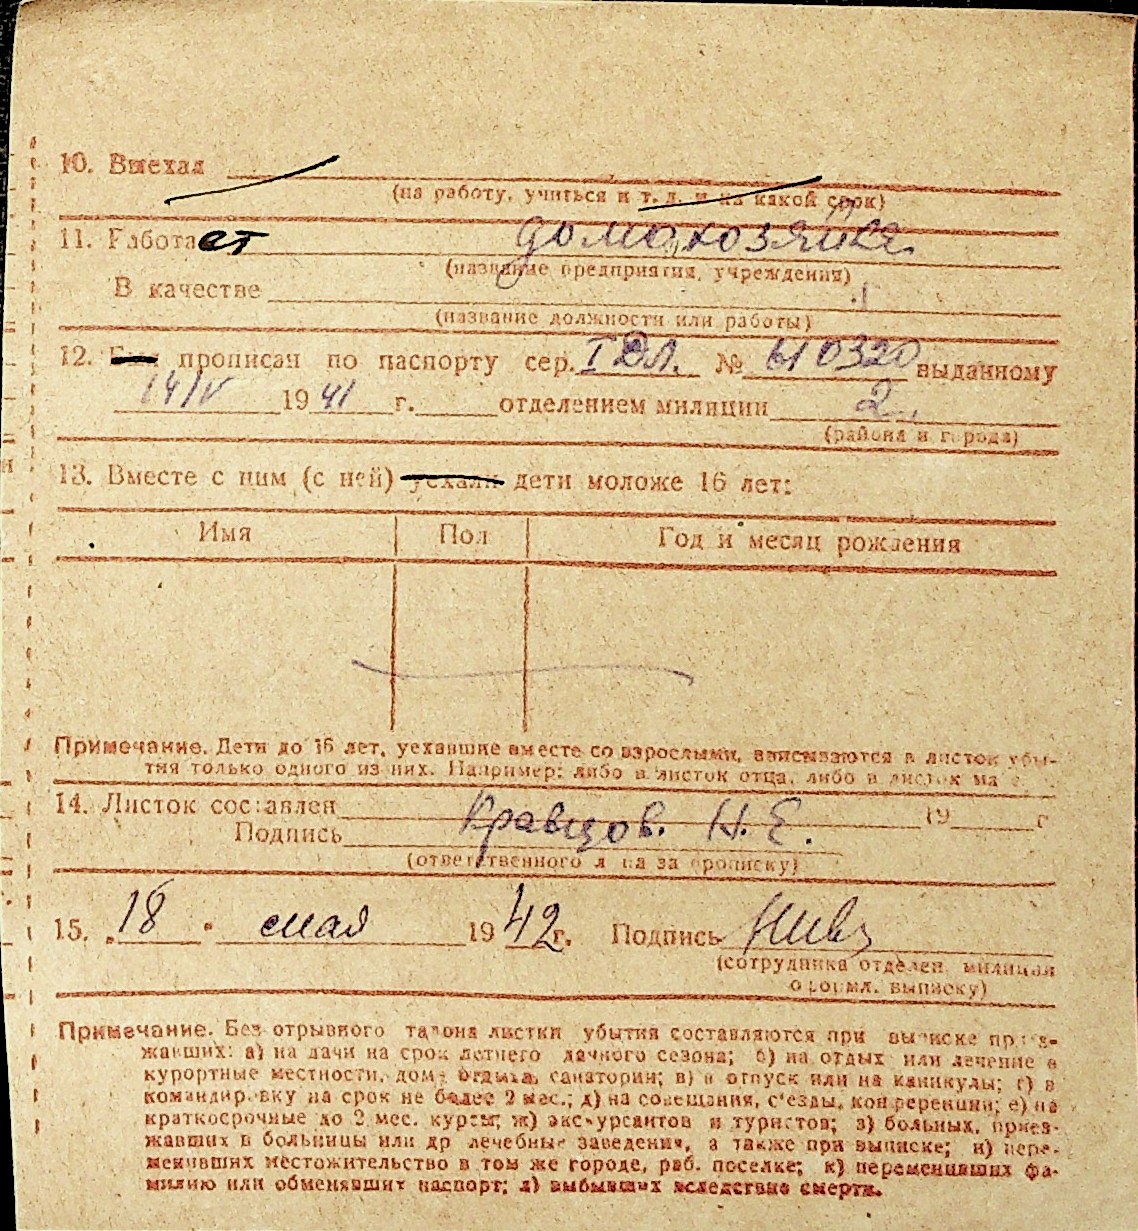 10. Выехал
(на работу, учиться и т. д. и на какой срок)
11. Работает домохозяйка
(название предприятия, учреждения)
В качестве
(название должности или работы)
12. прописан по паспорту сер. I ДЛ. № 610320 выданному
14/V 1941 г. отделением милиции 2.
(района и города)
13. Вместе с ним (с ней) уехали дети моложе 16 лет:
Имя Пол Год и месяц рождения
Примечание. Дети до 16 лет, уехавшие вместе со взрослыми, вписываются в листок убы-
тия только одного из них. Например: либо в листок отца, либо в листок
14. Листок составлен 19 г
Кравцов. Н. Е.
Подпись
(ответственного лица за прописку)
15. 18 мая 1942 г. Подпись
(сотрудника отделен. милиции
оформл. выписку)
Примечание. Без отрывного талона листки убытия составляются при выписке приез-
жавших: а) на дачи на срок летнего дачного сезона; б) на отдых или лечение в
курортные местности, дома отдыха, санатории; в) в отпуск или на каникулы; г) в
командировку на срок не более 2 мес.; д) на совещания, с'езды, конференции; е) на
краткосрочные до 2 мес. курсы; ж) экскурсантов и туристов; з) больных, приез-
жавших в больницы или др лечебные заведения, а также при выписке; и) пере-
менивших местожительство в том же городе, раб. поселке; к) переменивших фа-
милию или обменявших паспорт; л) выбывших вследствие смерти.